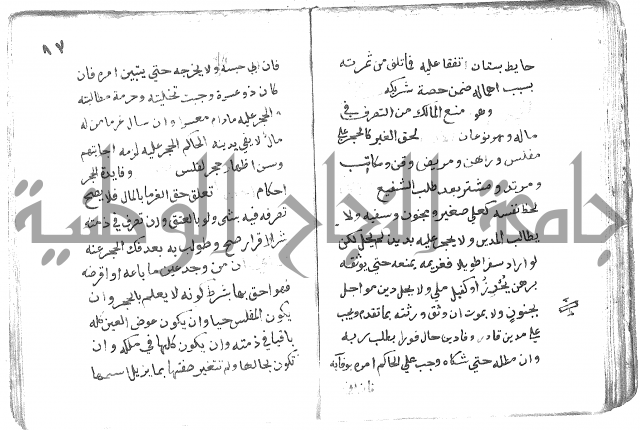 حايط بستان اتفقا عليه فما تلف من ثمرته
بسبب اهماله ضمن حصة شريكه
وهو منع المالك من التصرف في
ماله وهو نوعان لحق الغير كالحجر على
مفلس وراهن ومريض وقن ومكاتب
ومرتد ومشتر بعد طلب الشفيع
لحظ نفسه كعلى صغير ومجنون وسفيه ولا
يطالب المدين ولا يحجر عليه بدين لم يحل لكن
لو اراد سفرا طويلا فلغريمه منعه حتى يوثقه
برهن يحرز او كفيل ملي ولا يحل دين مؤجل
بجنون ولا بموت ان وثق ورثته بما تقدم ويجب
على مدين قادر وفا دين حال فورا بطلب ربه
وان مطله حتى شكاه وجب على الحاكم امره بوفائه
فان ابى
٨٧
فان ابى حبسه ولا يخرجه حتى يتبين امره فان
كان ذو عسرة وجبت تخليته وحرمة مطالبته
والحجر عليه مادام معسرا وان سال غرما من له
مال لا يفي بدينه الحاكم الحجر عليه لزمه اجابتهم
وسن اظهار حجر لفلس وفايدة الحجر
احكام تعلق حق الغرما بالمال فلا يصح
تصرفه فيه بشي ولو بالعتق وان تصرف في ذمته
بشرا او اقرار صح وطولب به بعد فك الحجر عنه
ان من وجد عين ما باعه او اقرضه
فهو احق بها بشرط كونه لا يعلم بالحجر وان
يكون المفلس حيا وان يكون عوض العين كله
باقيا في ذمته وان يكون كلها في ملكه وان
تكون بحالها ولم تتغير صفتها بما يزيل اسمها
جامعة النجاح الوطنية